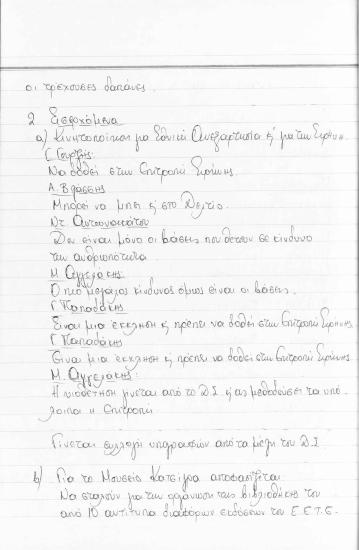 οι τρέχουσες δαπάνες.
2 Εισερχόμενα
α) Κινητοποίηση για Εθνική Ανεξαρτησία κ' για την Ειρήνη.
Γ. Γουρζής.
Να δοθεί στην Επιτροπή Ειρήνης.
Α. Βλάσσης
Μπορεί να μπει κ' στο Δελτίο.
Ντ. Αντωνακάτου
Δεν είναι μόνο οι βάσεις που θέτουν σε κίνδυνο
την ανθρωπότητα.
Μ. Αγγελάκης.
Ο πιο μεγάλος κίνδυνος όμως είναι οι βάσεις.
Γ. Παπαδάκη
Είναι μια έκκληση κ' πρέπει να δοθεί στην Επιτροπή Ειρήνης
Γ. Παπαδάκη
Είναι μια έκκληση κ' πρέπει να δοθεί στην Επιτροπή Ειρήνης
Μ. Αγγελάκης:
Η υιοθέτηση γίνεται από το Δ.Σ κ' ας μεθοδεύσει τα υπό-
λοιπα η Επιτροπή
Γίνεται συλλογή υπογραφών από τα μέλη του Δ.Σ
β) Για το Μουσείο Κατσίγρα αποφασίζεται
Να σταλούν για την οργάνωση της βιβλιοθήκης του
από 10 αντίτυπα διαφόρων εκδόσεων του Ε.Ε.Τ.Ε.